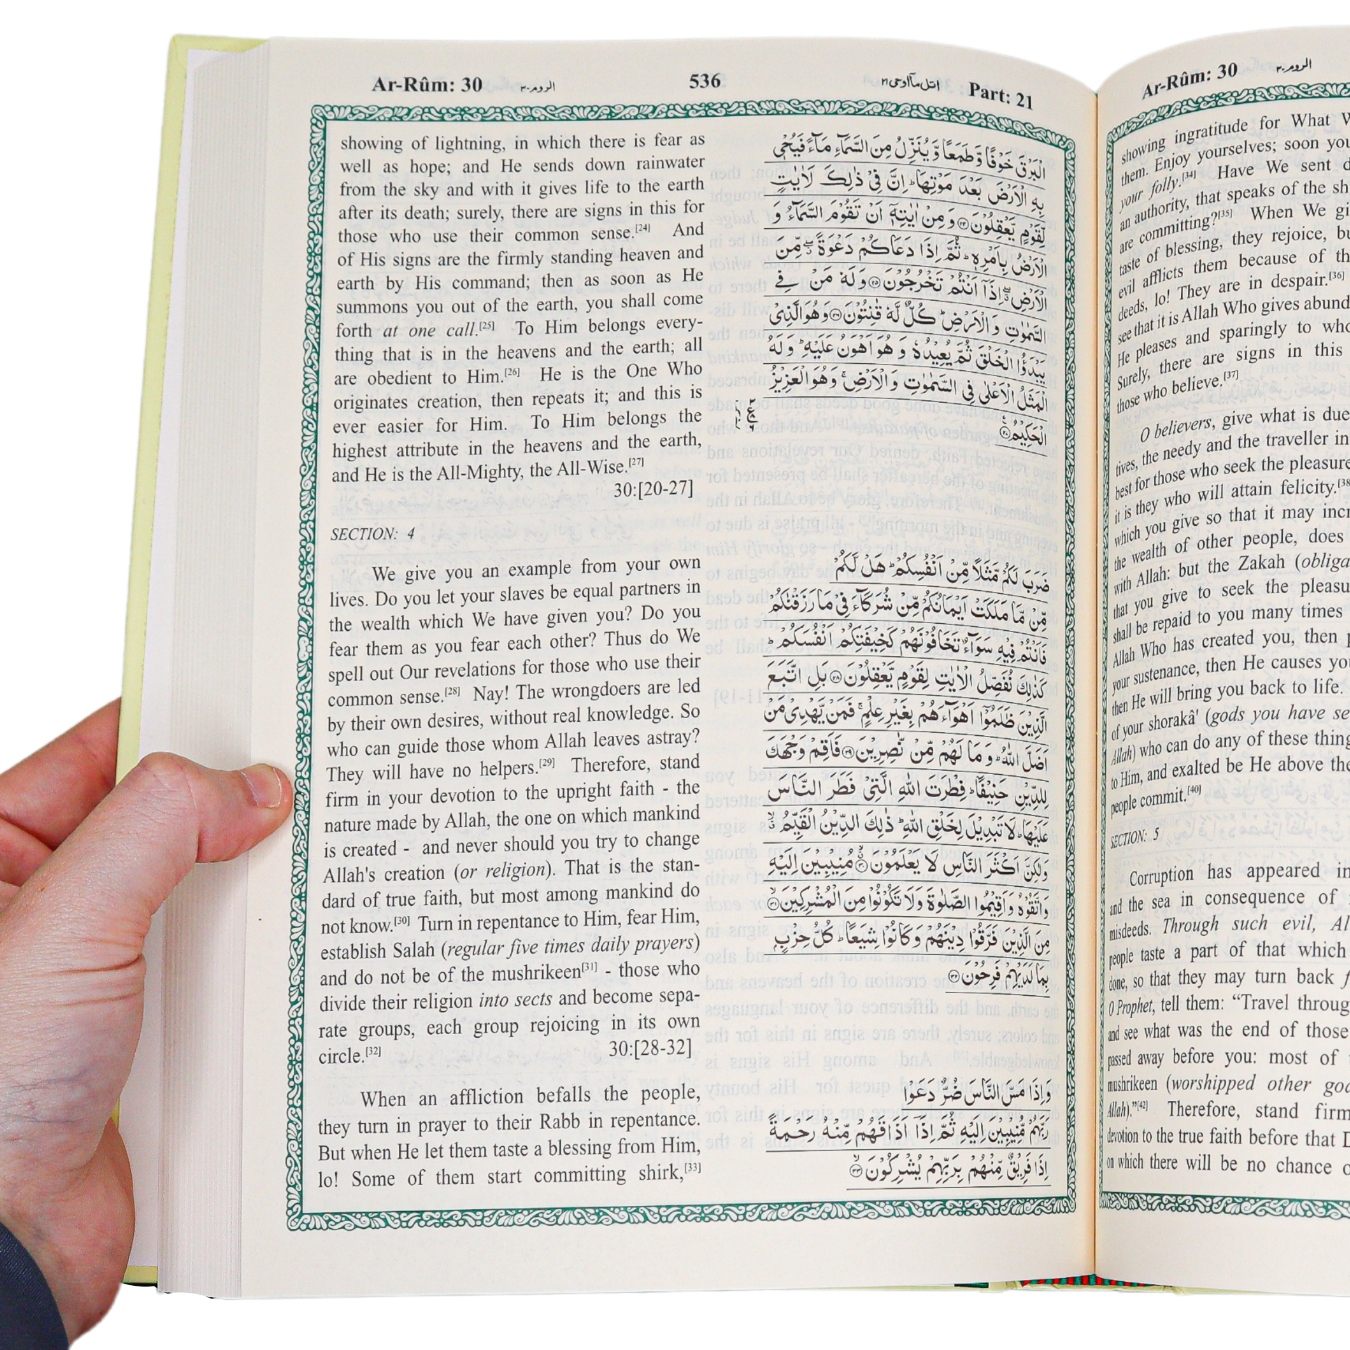 Ar-Rûm: 30 الروم-٣٠ 536 اتل ما اوحی ٢١ Part: 21
showing of lightning, in which there is fear as
well as hope; and He sends down rainwater
from the sky and with it gives life to the earth
after its death; surely, there are signs in this for
those who use their common sense.[24] And
of His signs are the firmly standing heaven and
earth by His command; then as soon as He
summons you out of the earth, you shall come
forth at one call.[25] To Him belongs every-
thing that is in the heavens and the earth; all
are obedient to Him.[26] He is the One Who
originates creation, then repeats it; and this is
ever easier for Him. To Him belongs the
highest attribute in the heavens and the earth,
and He is the All-Mighty, the All-Wise.[27]
30:[20-27]
SECTION: 4
We give you an example from your own
lives. Do you let your slaves be equal partners in
the wealth which We have given you? Do you
fear them as you fear each other? Thus do We
spell out Our revelations for those who use their
common sense.[28] Nay! The wrongdoers are led
by their own desires, without real knowledge. So
who can guide those whom Allah leaves astray?
They will have no helpers.[29] Therefore, stand
firm in your devotion to the upright faith - the
nature made by Allah, the one on which mankind
is created - and never should you try to change
Allah's creation (or religion). That is the stan-
dard of true faith, but most among mankind do
not know.[30] Turn in repentance to Him, fear Him,
establish Salah (regular five times daily prayers)
and do not be of the mushrikeen[31] - those who
divide their religion into sects and become sepa-
rate groups, each group rejoicing in its own
circle.[32] 30:[28-32]
When an affliction befalls the people,
they turn in prayer to their Rabb in repentance.
But when He let them taste a blessing from Him,
lo! Some of them start committing shirk,[33]
الْبَرْقَ خَوْفًا وَّطَمَعًا وَّيُنَزِّلُ مِنَ السَّمَآءِ مَآءً فَيُحْيٖ
بِهِ الْاَرْضَ بَعْدَ مَوْتِهَا ؕ اِنَّ فِيْ ذٰلِكَ لَاٰيٰتٍ
لِّقَوْمٍ يَّعْقِلُوْنَ ﴿٢٤﴾ وَمِنْ اٰيٰتِهٖۤ اَنْ تَقُوْمَ السَّمَآءُ وَ
الْاَرْضُ بِاَمْرِهٖ ؕ ثُمَّ اِذَا دَعَاكُمْ دَعْوَةً ۖۗ مِّنَ
الْاَرْضِ ۖۗ اِذَاۤ اَنْتُمْ تَخْرُجُوْنَ ﴿٢٥﴾ وَلَهٗ مَنْ فِي
السَّمٰوٰتِ وَالْاَرْضِ ؕ كُلٌّ لَّهٗ قٰنِتُوْنَ ﴿٢٦﴾ وَهُوَ الَّذِيْ
يَبْدَؤُا الْخَلْقَ ثُمَّ يُعِيْدُهٗ وَهُوَ اَهْوَنُ عَلَيْهِ ؕ وَلَهُ
الْمَثَلُ الْاَعْلٰى فِي السَّمٰوٰتِ وَالْاَرْضِ ۚ وَهُوَ الْعَزِيْزُ
الْحَكِيْمُ ﴿٢٧﴾
ضَرَبَ لَكُمْ مَّثَلًا مِّنْ اَنْفُسِكُمْ ؕ هَلْ لَّكُمْ
مِّنْ مَّا مَلَكَتْ اَيْمَانُكُمْ مِّنْ شُرَكَآءَ فِيْ مَا رَزَقْنٰكُمْ
فَاَنْتُمْ فِيْهِ سَوَآءٌ تَخَافُوْنَهُمْ كَخِيْفَتِكُمْ اَنْفُسَكُمْ ؕ
كَذٰلِكَ نُفَصِّلُ الْاٰيٰتِ لِقَوْمٍ يَّعْقِلُوْنَ ﴿٢٨﴾ بَلِ اتَّبَعَ
الَّذِيْنَ ظَلَمُوْۤا اَهْوَآءَهُمْ بِغَيْرِ عِلْمٍ ۚ فَمَنْ يَّهْدِيْ مَنْ
اَضَلَّ اللّٰهُ ؕ وَمَا لَهُمْ مِّنْ نّٰصِرِيْنَ ﴿٢٩﴾ فَاَقِمْ وَجْهَكَ
لِلدِّيْنِ حَنِيْفًا ؕ فِطْرَتَ اللّٰهِ الَّتِيْ فَطَرَ النَّاسَ
عَلَيْهَا ؕ لَا تَبْدِيْلَ لِخَلْقِ اللّٰهِ ؕ ذٰلِكَ الدِّيْنُ الْقَيِّمُ ۙ
وَلٰكِنَّ اَكْثَرَ النَّاسِ لَا يَعْلَمُوْنَ ﴿٣٠﴾ مُنِيْبِيْنَ اِلَيْهِ
وَاتَّقُوْهُ وَاَقِيْمُوا الصَّلٰوةَ وَلَا تَكُوْنُوْا مِنَ الْمُشْرِكِيْنَ ﴿٣١﴾
مِنَ الَّذِيْنَ فَرَّقُوْا دِيْنَهُمْ وَكَانُوْا شِيَعًا ؕ كُلُّ حِزْبٍۭ
بِمَا لَدَيْهِمْ فَرِحُوْنَ ﴿٣٢﴾
وَاِذَا مَسَّ النَّاسَ ضُرٌّ دَعَوْا
رَبَّهُمْ مُّنِيْبِيْنَ اِلَيْهِ ثُمَّ اِذَاۤ اَذَاقَهُمْ مِّنْهُ رَحْمَةً
اِذَا فَرِيْقٌ مِّنْهُمْ بِرَبِّهِمْ يُشْرِكُوْنَ ﴿٣٣﴾
Ar-Rûm: 30 الروم-٣٠
showing ingratitude for What
them. Enjoy yourselves; soon
your folly.[34] Have We sent
an authority, that speaks of the
are committing?[35] When We
taste of blessing, they rejoice,
evil afflicts them because of
deeds, lo! They are in despair.[36]
see that it is Allah Who gives
He pleases and sparingly to
Surely, there are signs in this
those who believe.[37]
O believers, give what is due
tives, the needy and the traveller in
best for those who seek the pleasure
it is they who will attain felicity.[38
which you give so that it may
the wealth of other people, does
with Allah: but the Zakah
that you give to seek the
shall be repaid to you many times
Allah Who has created you, then
your sustenance, then He causes
then He will bring you back to life.
of your shorakâ' (gods you have
Allah) who can do any of these
to Him, and exalted be He above
people commit.[40]
SECTION: 5
Corruption has appeared
and the sea in consequence of
misdeeds. Through such evil,
people taste a part of that which
done, so that they may turn back
O Prophet, tell them: “Travel
and see what was the end of those
passed away before you: most of
mushrikeen (worshipped other
Allah).”[42] Therefore, stand
devotion to the true faith before that
on which there will be no chance